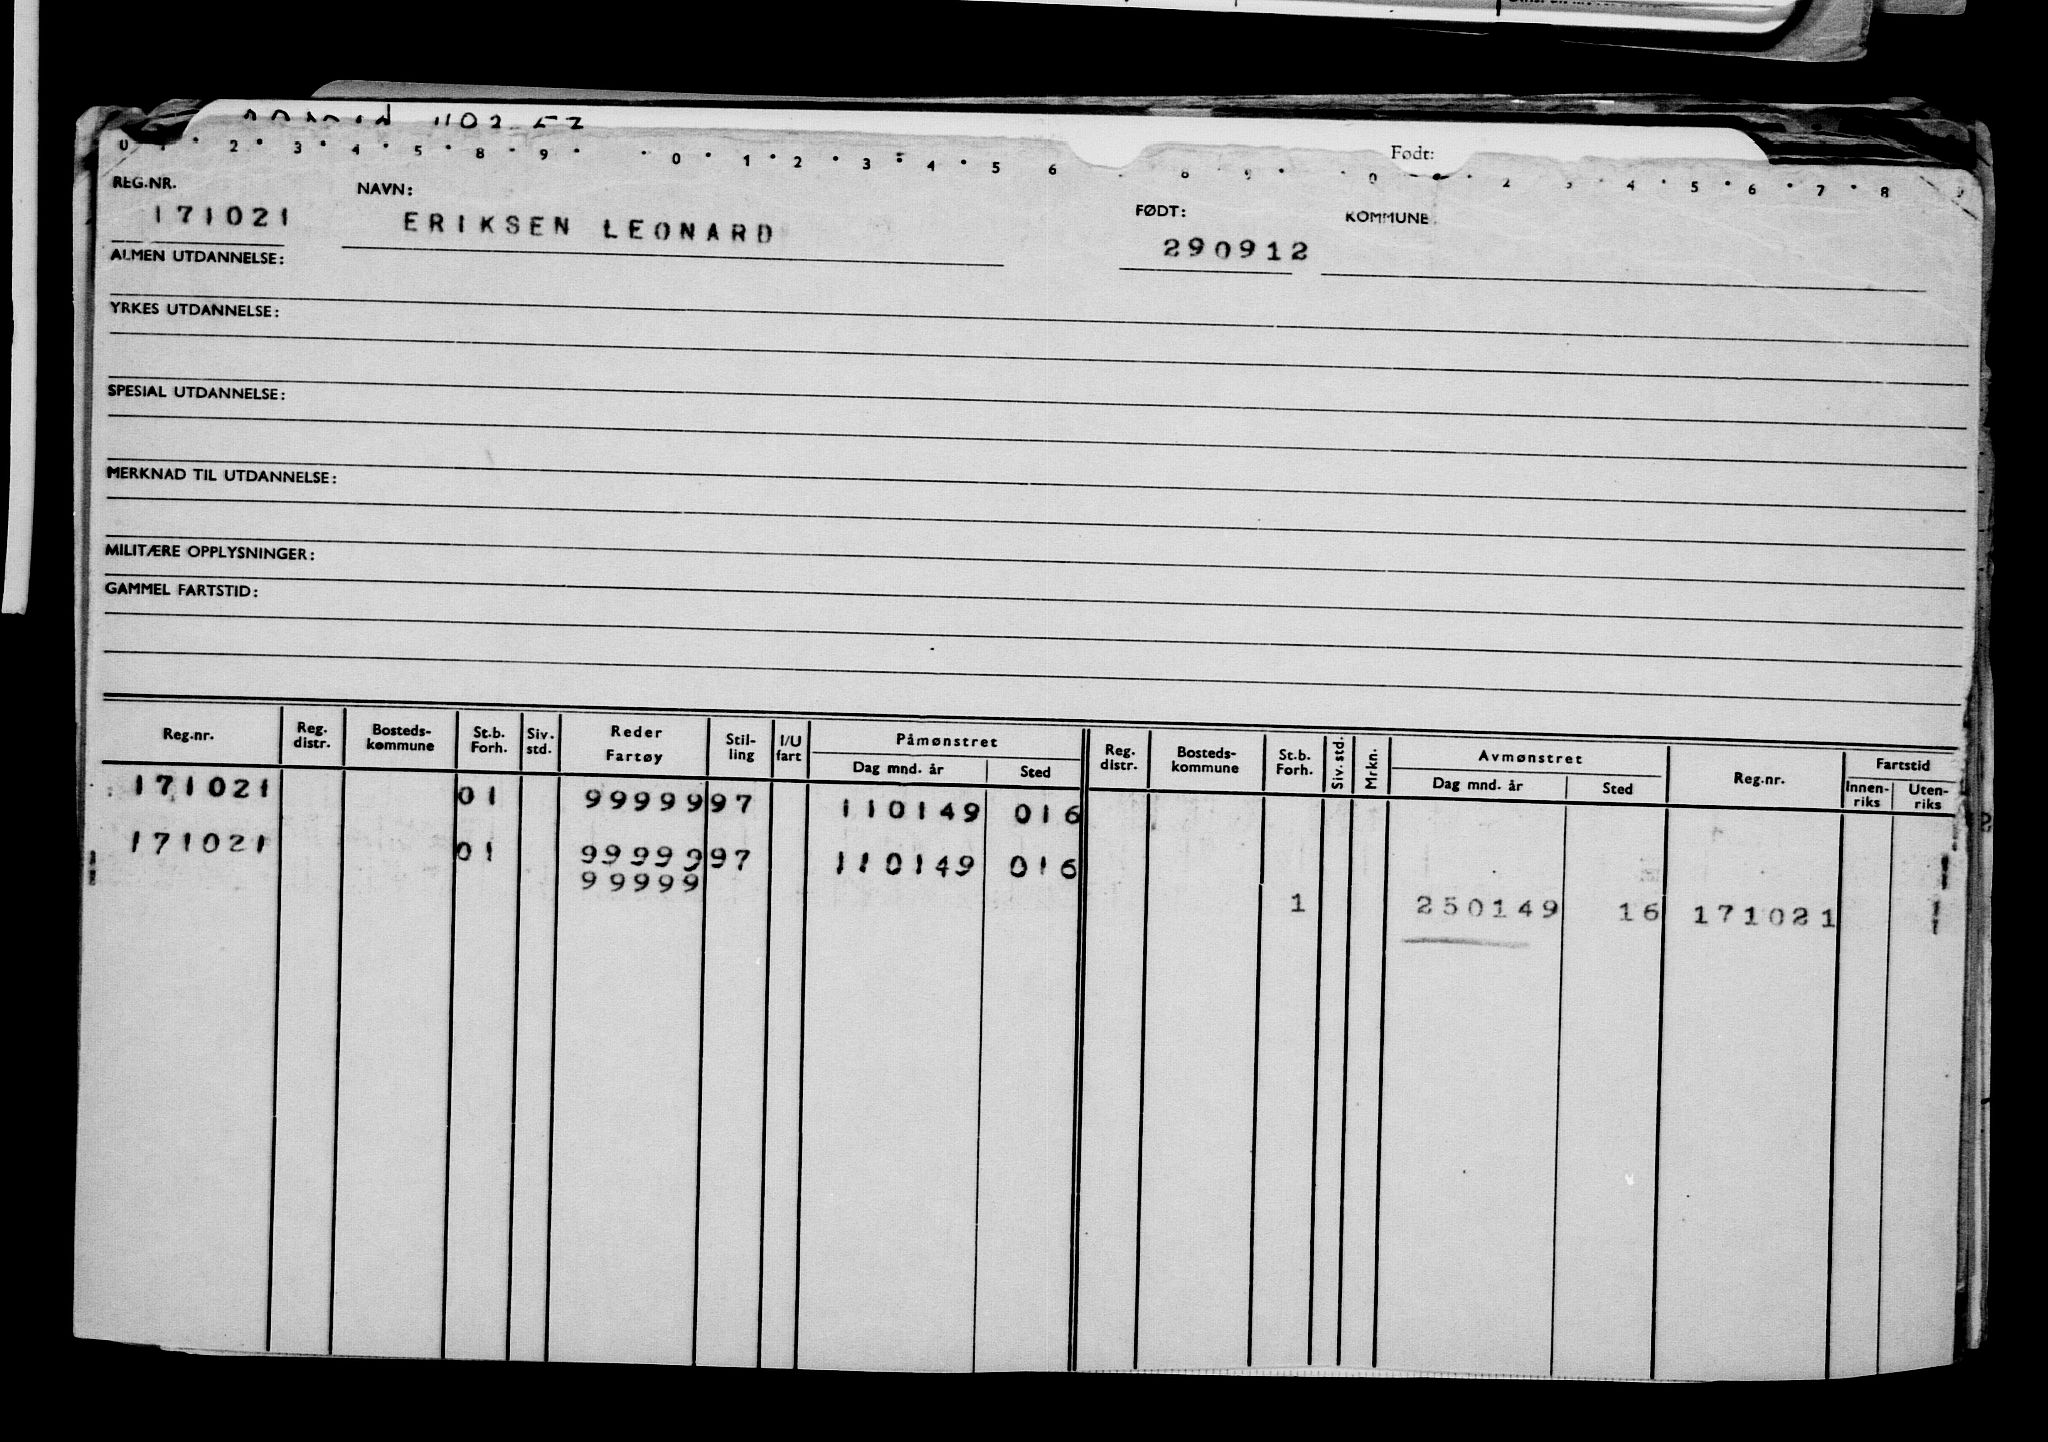 Født:
0 1 · 2 · 3 · 4 · 5 · 8 · 9 · · 0 · 1 · 2 · 3 · 4 · 5 6 · 8 · 9 · · 0 · 2 3 · 4 · 5 · 6 · 7 · 8
REG.NR. NAVN: FØDT: KOMMUNE
171021 ERIKSEN LEONARD 290912
ALMEN UTDANNELSE:
YRKES UTDANNELSE:
SPESIAL UTDANNELSE:
MERKNAD TIL UTDANNELSE:
MILITÆRE OPPLYSNINGER:
GAMMEL FARTSTID:
Reg.nr. Reg. distr. Bosteds-kommune St.b. Forh. Siv. std. Reder Fartøy Stil-ling I/U fart Påmønstret Dag mnd. år Sted Reg. distr. Bosteds-kommune St.b. Forh. Siv. std. Mrkn. Avmønstret Dag mnd. år Sted Reg.nr. Fartstid Innen-riks Uten-riks
171021 01 99999 97 110149 016
171021 01 99999 97 110149 016
99999 1 250149 16 171021